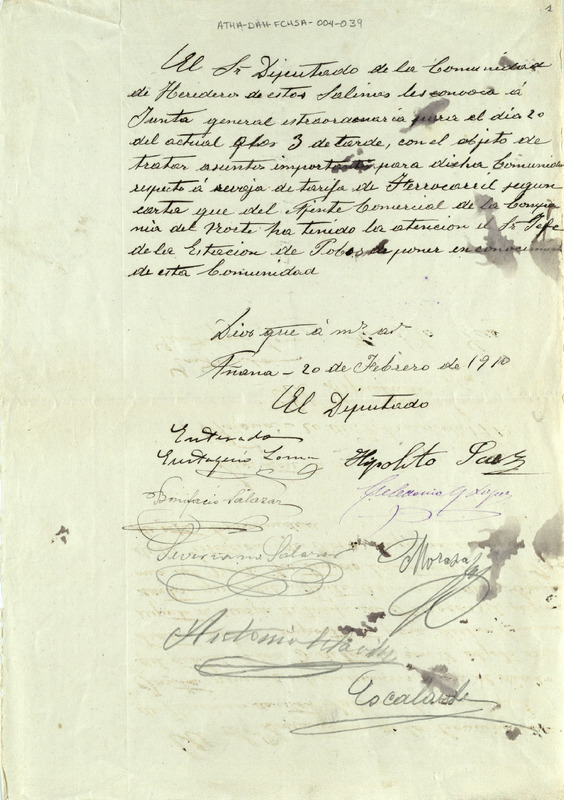 ATHA-DAH-FCHSA-004-039
El Sr Diputado de la Comunidad
de Herederos de estas Salinas les convoca á
Junta general estraordinaria para el dia 20
del actual á las 3 de tarde, con el objeto de
tratar asuntos importantes para dicha Comunidad
respecto á revaja de tarifa de Ferrocarril segun
carta que del Ajente Comercial de la Compa
nia del Norte ha tenido la atencion el Sr Jefe
de la Estacion de Pobes de poner en conocimiento
de esta Comunidad
Dios gue á
Añana - 20 de Febrero de 1910
El Diputado
Enterado
Eustaquio Loma
Hipolito Paez
Bonifacio Salazar
Celedonio G Lopez
Severiano Salazar
Moraza
Antonio
Escalante